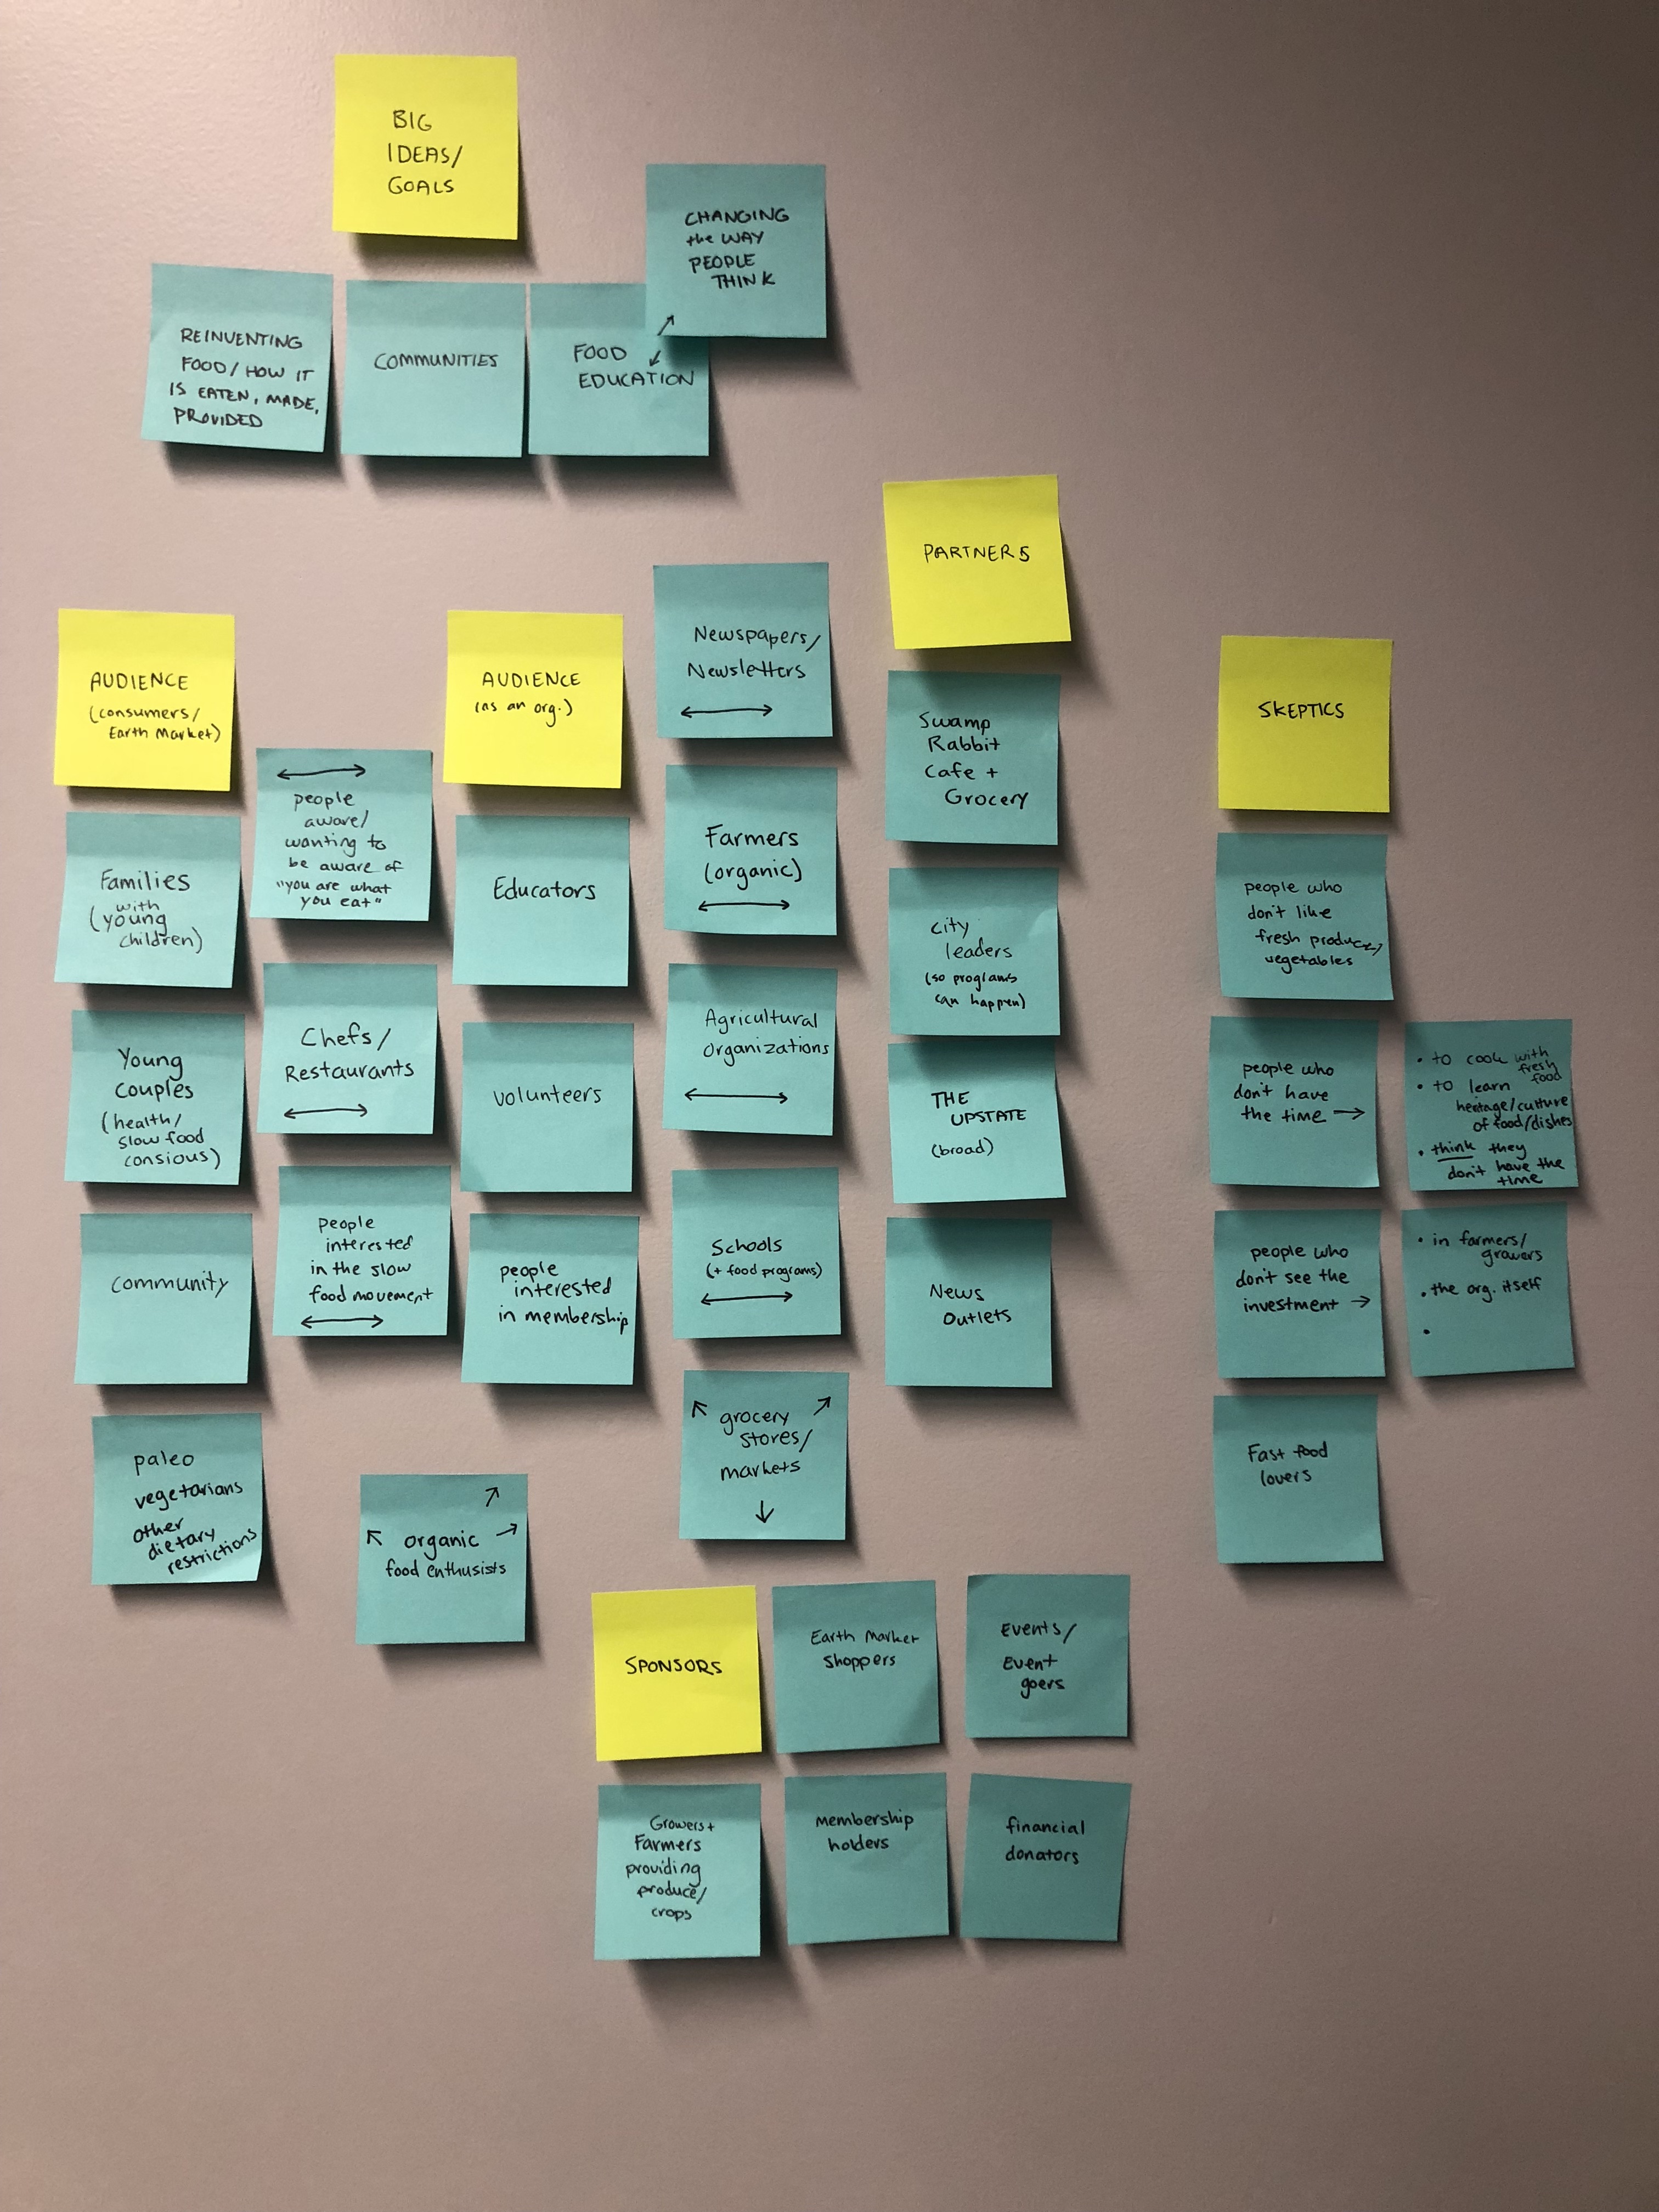 BIG
IDEAS/
GOALS
CHANGING
the WAY
PEOPLE
THINK
REINVENTING
FOOD/HOW IT
IS EATEN, MADE,
PROVIDED
COMMUNITIES
FOOD
EDUCATION
AUDIENCE
(consumers/
Earth Market)
Families
with
(young
children)
Young
couples
(health/
slow food
consious)
community
paleo
vegetarians
other
dietary
restrictions
people
aware/
wanting to
be aware of
"you are what
you eat"
Chefs/
Restaurants
people
interested
in the slow
food movement
organic
food enthusists
AUDIENCE
(as an org.)
Educators
volunteers
people
interested
in membership
Newspapers/
Newsletters
Farmers
(organic)
Agricultural
organizations
Schools
(+ food programs)
grocery
stores/
markets
PARTNERS
Swamp
Rabbit
Cafe +
Grocery
city
leaders
(so programs
can happen)
THE
UPSTATE
(broad)
News
Outlets
SKEPTICS
people who
don't like
fresh produce/
vegetables
people who
don't have
the time →
• to cook with
fresh
food
• to learn
heritage/culture
of food/dishes
• think they
don't have the
time
people who
don't see the
investment →
• in farmers/
growers
• the org. itself
•
Fast food
lovers
SPONSORS
Earth Market
shoppers
Events/
Event
goers
Growers +
Farmers
providing
produce/
crops
membership
holders
financial
donators